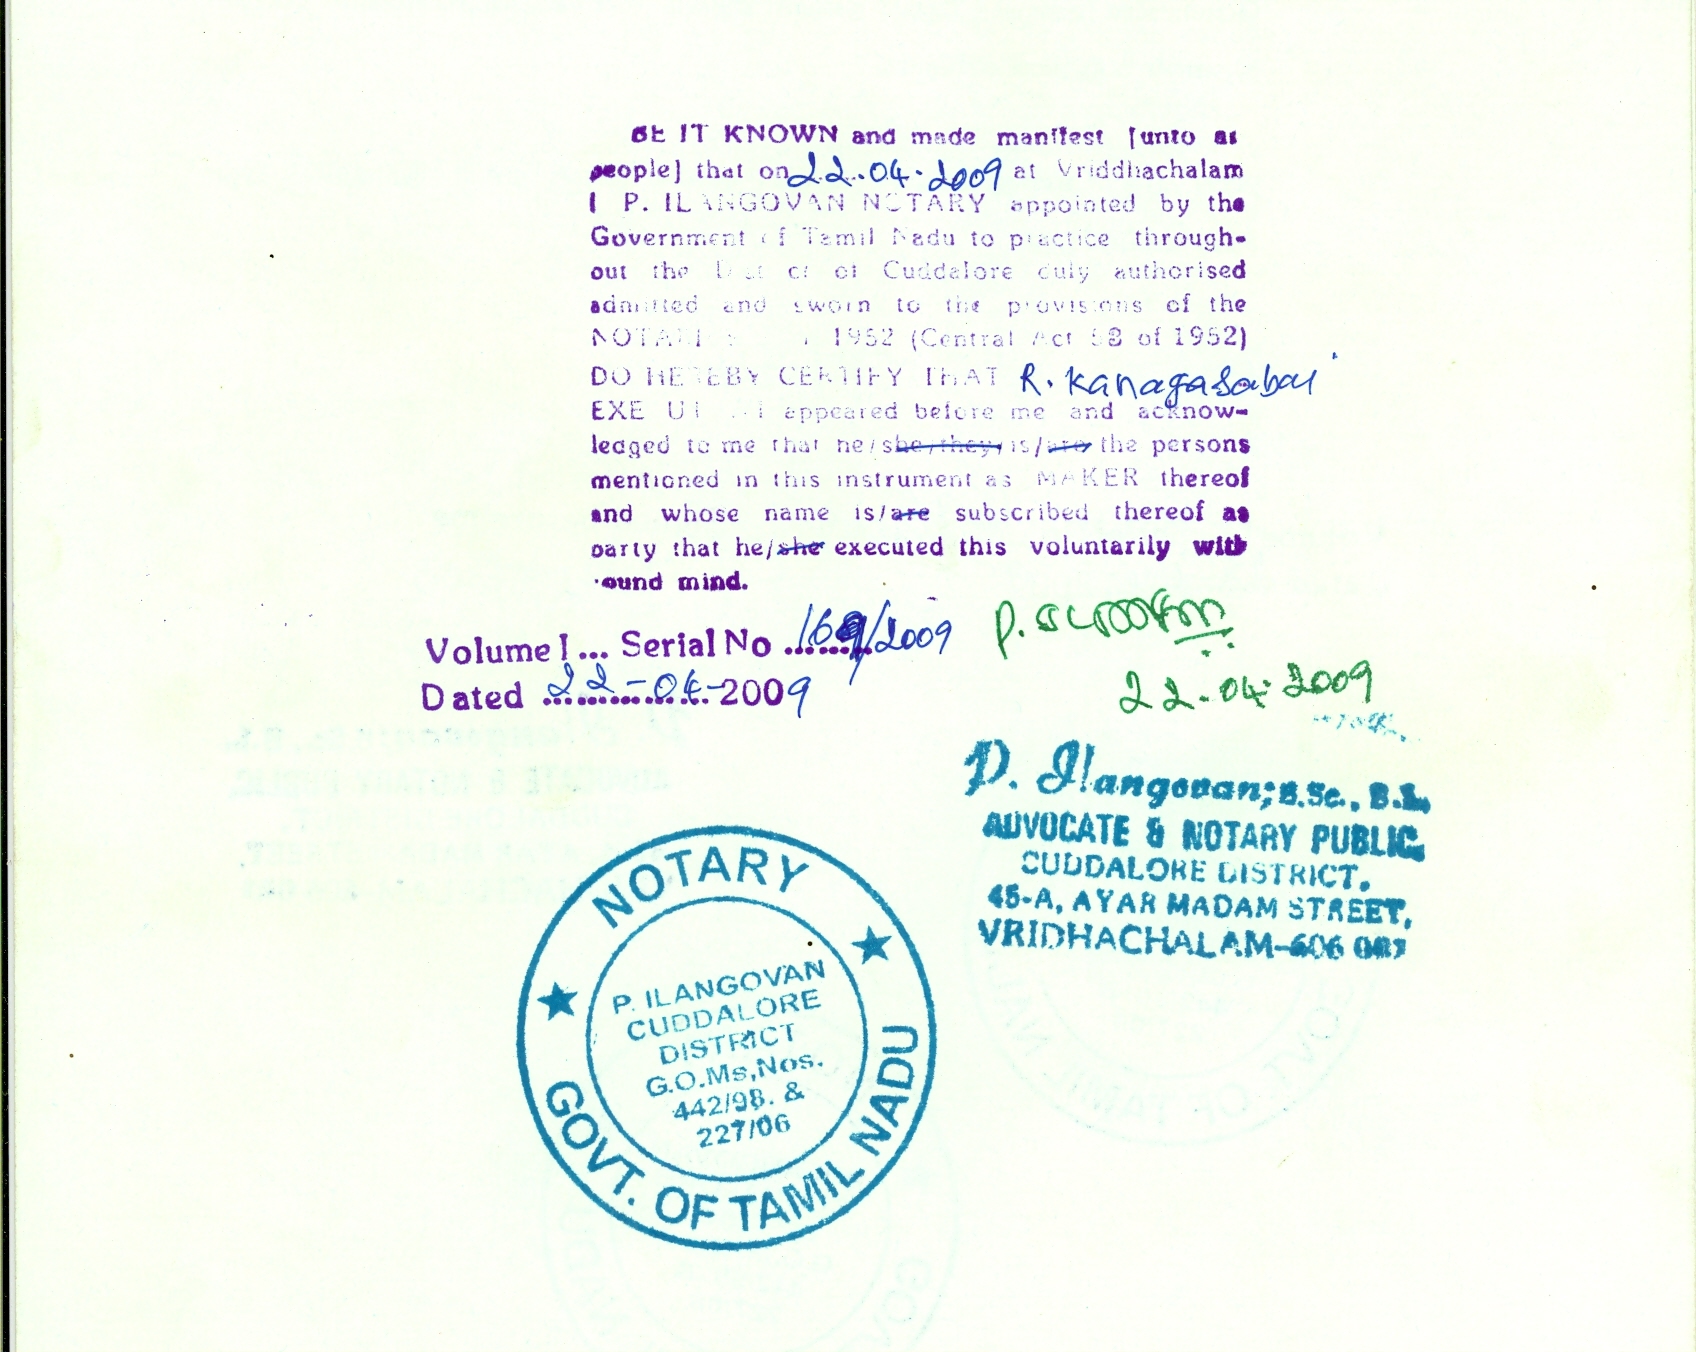 BE IT KNOWN and made manifest [unto as
people] that on 22.04.2009 at Vriddhachalam
I P. ILANGOVAN NOTARY appointed by the
Government of Tamil Nadu to practice through-
out the District of Cuddalore duly authorised
admitted and sworn to the provisions of the
1952 (Central Act 58 of 1952)
DO HEREBY CERTIFY THAT R. Kanagasabai
appeared before me and acknow-
ledged to me that he/she/they/is/are the persons
mentioned in this instrument as MAKER thereof
and whose name is/are subscribed thereof as
party that he/she executed this voluntarily with
sound mind.
Volume I ... Serial No 169/2009
Dated 22-04-2009
22.04.2009
P. Ilangovan, B.Sc., B.L.
ADVOCATE & NOTARY PUBLIC
CUDDALORE DISTRICT.
45-A, AYAR MADAM STREET,
VRIDHACHALAM-606
NOTARY
P. ILANGOVAN
CUDDALORE
DISTRICT
G.O.Ms,Nos.
442/98. &
227/06
GOVT. OF TAMIL NADU